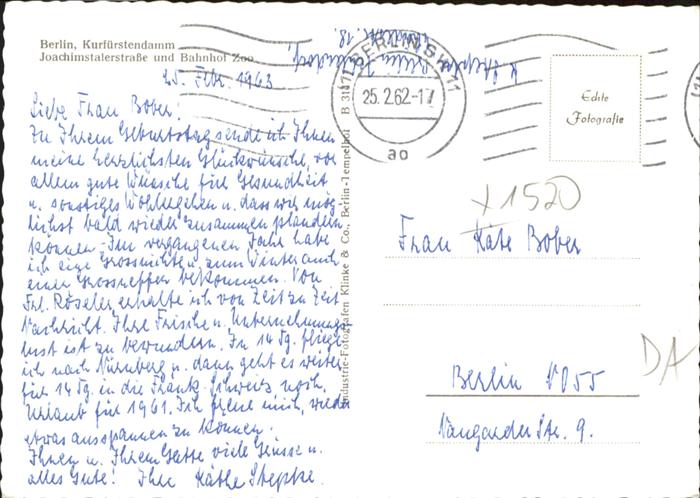 Berlin, Kurfürstendamm
Joachimstalerstraße und Bahnhof Zoo
25. Febr. 1963
Liebe Frau Bober!
Zu Ihrem Geburtstag sende ich Ihnen
meine herzlichsten Glückwünsche, vor
allem gute Wünsche für Gesundheit
u. sonstiges Wohlergehen u. dass wir mög-
lichst bald wieder zusammen plaudern
können. Im vergangenen Jahr habe
ich eine Grossnichte u. zum Winter auch
einen Grossneffen bekommen. Von
Frl. Röseler erhalte ich von Zeit zu Zeit
Nachricht. Ihre Frische u. Unternehmungs-
lust ist zu bewundern. In 14 Tg. fliege
ich nach Nürnberg u. dann geht es weiter
für 14 Tg. in die Fränk. Schweiz noch
Urlaub für 1961. Ich freue mich, wieder
etwas ausspannen zu können.
Ihnen u. Ihrem Gatte viele Grüsse u.
alles Gute! Ihre Käthe Stepke.
Industrie-Fotografen Klinke & Co., Berlin-Tempelhof B 3107
BERLIN SW 11
25.2.62-17
ao
Echte
Fotografie
+ 1520
Frau Käte Bober
Berlin NO55
Naugarder Str. 9.
DA